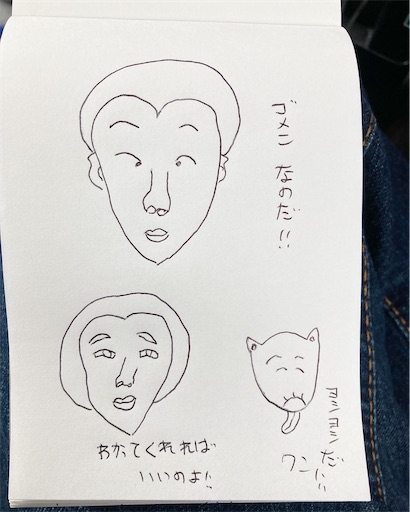 ゴメン なのだ!!
わかってくれれば
いいのよ!!
ヨシヨシだ
ワン!!